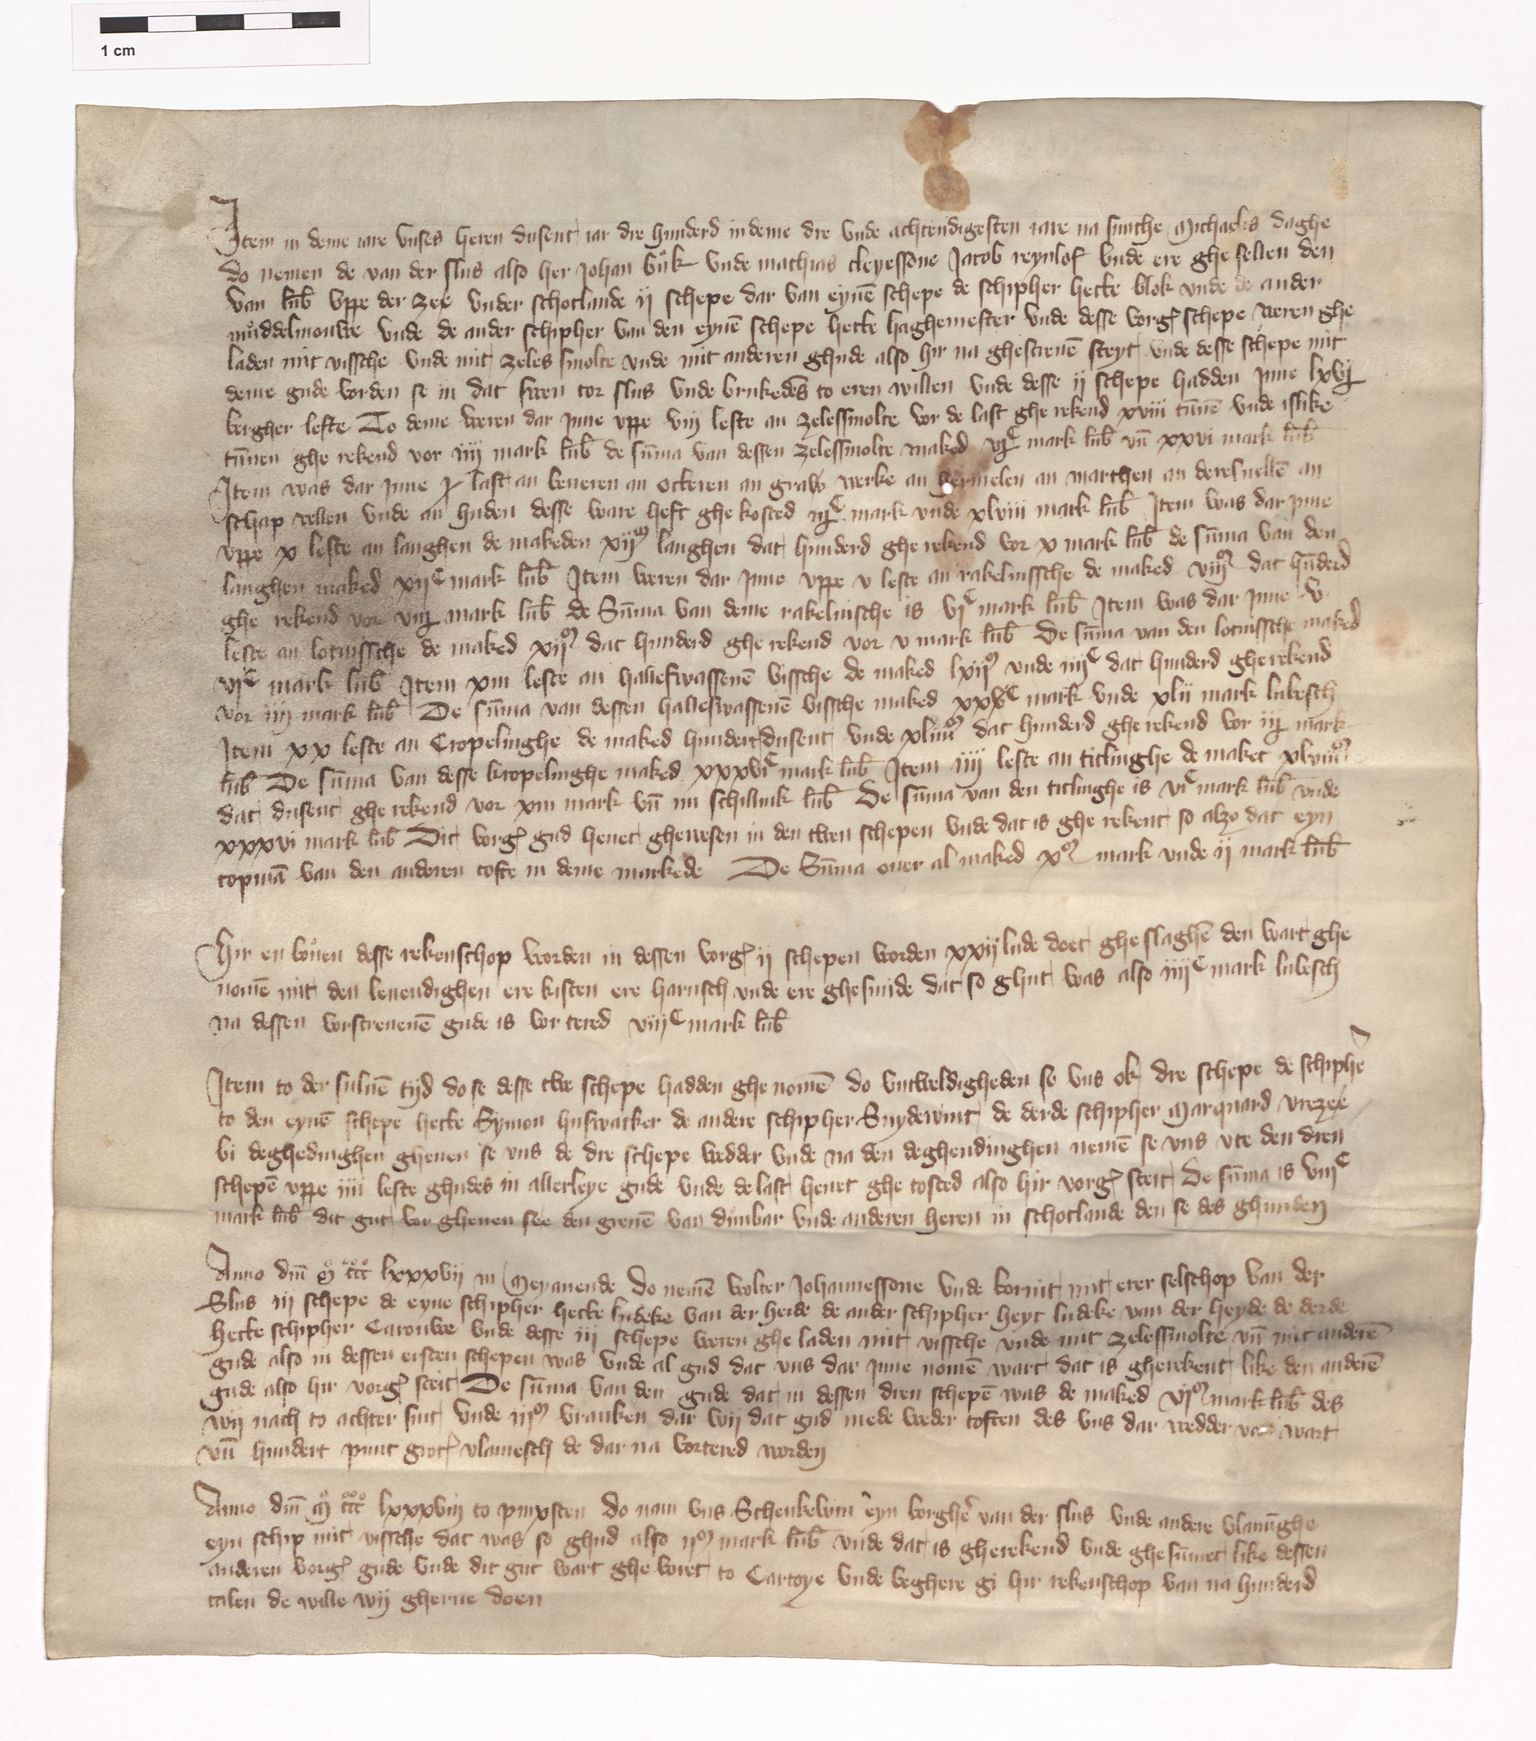 1 cm
Item in deme iare unses heren dusent iar dre hunderd in deme dre unde achtendigesten iare na sunthe Michaelis daghe
do nemen de van der slus also her Johan buͦk unde mathias cleyessone Jacob reynlof unde ere ghe sellen den
van lub̄ uppe der zee under schotlande ij schepe dar van eynē schepe de schipher hecke blok unde de ander
muͦddelmouwe unde de ander schipher van den eynē schepe hette haghemester unde desse vorgͬ schepe weren ghe
laden mit vissche unde mit zeles smolte unde mit anderen ghude also hir na ghescreuē steyt unde desse schepe mit
deme gude vorden se in dat swen tor slus unde brukedēs to eren willen unde desse ij schepe hadden jnne lxvij
bergher leste To deme weren dar jnne uppe viij leste an zelessmolte vor de last ghe rekend xviii tūnē unde islike
tūnen ghe rekend vor iiij mark lub̄ de sūma van dessen zelessmolte maked vͨ mark lub̄ uñ xxvi mark lub̄
Item was dar jnne j last an beueren an ockeren an graw werke an hermelen an marthen an deresuellē an
schap vellen unde an huden desse ware heft ghe kosted iijͨ mark unde xlviii mark lub̄ Item was dar jnne
uppe x leste an langhen de makeden xijͫ langhen dat hunderd ghe rekend vor x mark lub̄ de sūma van den
langhen maked xijͨ mark lub̄ Item weren dar jnne uppe v leste an rakeluissche de maked viijͫ dat hūderd
ghe rekend vor viij mark lub̄ de Sūma van deme rakeluische is vjͨ mark lub̄ Item was dar jnne v
leste an lotuissche de maked xijͫ dat hunderd ghe rekend vor v mark lub̄ De sūma van den lotuissche maked
vjͨ mark lub̄ Item xiii leste an halfwassenē vissche de maked lxijͫ unde iiijͨ dat hunderd ghe rekend
vor iiij mark lub̄ De sūma van dessen halfwassenē vissche maked xxvͨ mark unde xlii mark lubesch
Item xx leste an Cropelinghe de maked hundertdusent unde xliiijͫ dat hunderd ghe rekend vor iij mark
lub̄ De sūma van desse kropelinghe maked xxxviͨ mark lub̄ Item iiij leste an titlinghe de maket xlviijͫ
dat dusent ghe rekend vor xiii mark uñ iiii schillink lub̄ De sūma van den titlinghe is viͨ mark lub̄ unde
xxxvi mark lub̄ Dit vorgͬ gud heuet ghewesen in den twen schepen unde dat is ghe rekent so alzo dat eyn
copmā van den anderen cofte in deme markede De Sūma ouer al maked xͫ mark unde ij mark lub̄
Hir en boͤuen desse rekenschop worden in dessen vorgͬ ij schepen worden xxij lude doet gheslaghē den wart ghe
nomē mit den leuendighen ere kisten ere harnsch unde ere ghesmide dat so ghut was also iiijͨ mark lubesch
na dessen vorscreuenē gude is vor tered viijͨ mark lub̄
Item to der suluē tijd do se desse twe schepe hadden ghe nomē do unweldigheden se uns ok dre schepe de schiphē
to den eynē schepe hecke Symon huswacker de andere schipher Snydewint de derde schipher Marquard vrezee
bi deghedinghen gheuen se uns de dre schepe wedder unde na den deghendinghen nemē se uns ute den dren
schepē uppe iiii leste ghudes in allerleye gude unde de last heuet ghe costed also hir vorgͬ steit De sūma is viijͨ
mark lub̄ dit gut vor gheuen see den greuē van dunbar unde anderen heren in schotlande den se des ghunden
Anno dm̄ mͦ cccͦ lxxxvij in Meyauende do nemē wolter Johannessone unde bornit mit erer selschop van der
Slus iij schepe de eyne schipher hecke ludeke van der heide de ander schipher heyt ludeke van der heyde de derde
hecke schipher Carouwe unde desse iij schepe weren ghe laden mit vissche unde mit zelessmolte uñ mit anderē
gude also in dessen ersten schepen was unde al gud dat uns dar jnne nomē wart dat is gherekent like den anderē
gude also hir vorgͬ steit De sūma van den gude dat in dessen dren schepē was de maked vjͫ mark lub̄ des
wij nach to achter sint unde iijͫ vranken dar wij dat gud mede weder coften des uns dar wedder wart
uñ hundert punt grotͬ vlamesch de dar na vortered worden
Anno dm̄ mͦ cccͦ lxxxviij to pinxsten do nam uns Schenkelwin eyn borghē van der slus unde andere vlamīghe
eyn schip mit vissche dat was so ghud also ijͫ mark lub̄ unde dat is gherekend unde ghesūmet like dessen
anderen vorgͬ gude unde dit gut wart ghe voret to Cartoye unde beghere gi hir rekenschop van na hunderd
talen de wille wij gherne doen